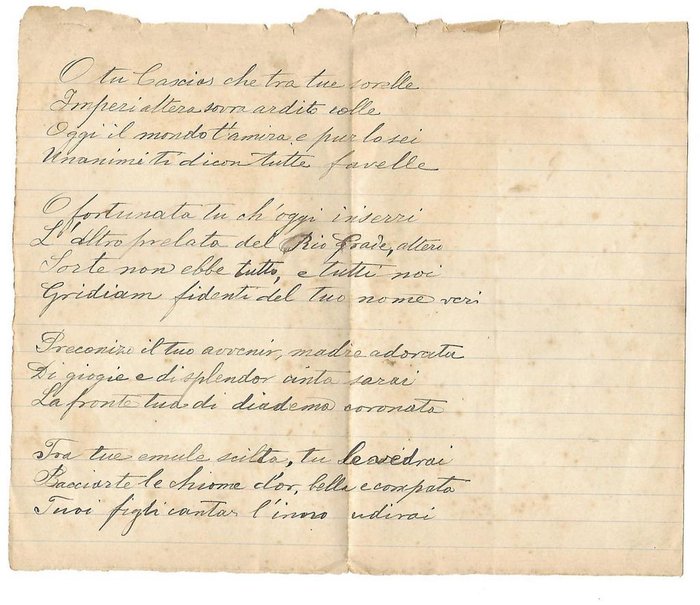 O tu Caxias che tra tue sorelle
Imperi altera sovra ardito colle
Oggi il mondo t'amira e pur lo sei
Unanimi ti dicon tutte favelle
O fortunata tu ch'oggi inserri
L'altro prelato del Rio Grāde, altero
Sorte non ebbe tutto, e tutti noi
Gridiam fidenti del tuo nome veri
Preconizo il tuo avvenir, madre adorata
Di giogie e di splendor cinta sarai
La fronte tua di diadema coronata
Tra tue emule scilta, tu le vedrai
Bacciarte le chiome d'or, bella e compata
Tuoi figli cantar l'inno udirai